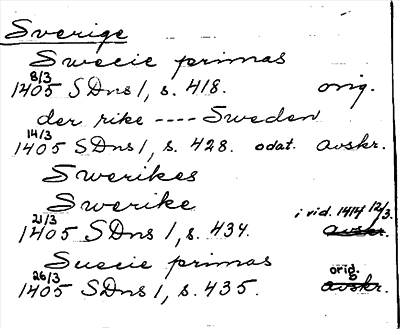 Sverige
Swecie primas
8/3
1405 SDns 1, s. 418. orig.
der rike ---- Sweden
14/3
1405 SDns 1, s. 428. odat. avskr.
Swerikes
Swerike
21/3
1405 SDns 1, s. 434. i vid. 1414 12/3. avskr.
Suecie primas
26/3
1405 SDns 1, s. 435. orig. avskr.